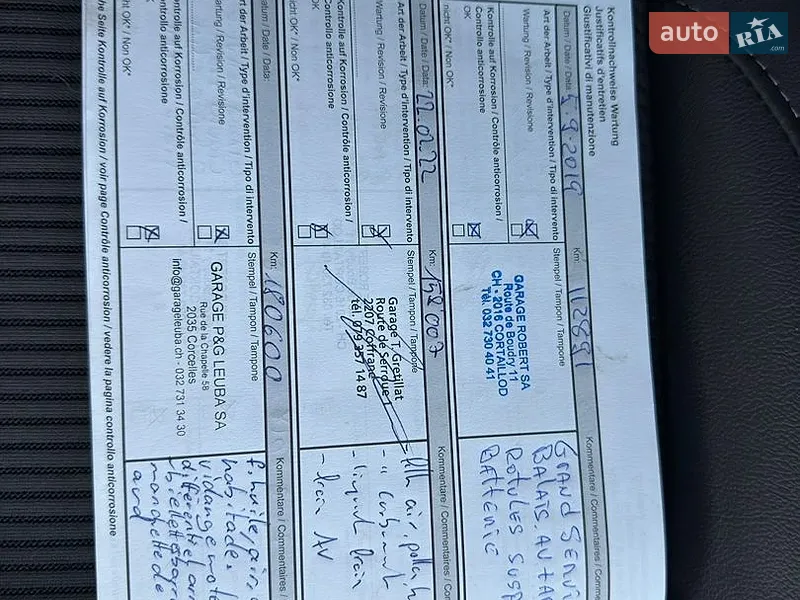 auto RIA.com
Kontrollnachweise Wartung
Justificatifs d'entretien
Giustificativi di manutenzione
Datum / Date / Data: 5.9.2019
Km: 112891
Art der Arbeit / Type d'intervention / Tipo di intervento
Stempel / Tampon / Tampone
Kommentare / Commentaires / Comme
Wartung / Revision / Revisione
Kontrolle auf Korrosion / Contrôle anticorrosion /
Controllo anticorrosione
OK
nicht OK* / Non OK*
GARAGE ROBERT SA
Route de Boudry 11
CH - 2016 CORTAILLOD
Tél. 032 730 40 41
GRAND SERVI
BALAIS AV + AR
ROTULES SUSP
BATTERIE
Datum / Date / Data: 22.02.22
Km: 158007
Art der Arbeit / Type d'intervention / Tipo di intervento
Stempel / Tampon / Tampone
Kommentare / Commentaires / Com
Wartung / Revision / Revisione
Kontrolle auf Korrosion / Contrôle anticorrosion /
Controllo anticorrosione
OK
nicht OK* / Non OK*
Garage T. Gretillat
Route de Serroue 1
2207 Coffrane
tél. 079 351 14 87
air, pollen
- frein AV
atum / Date / Data:
Km: 180600
Art der Arbeit / Type d'intervention / Tipo di intervento
Stempel / Tampon / Tampone
Kommentare / Commentaires /
artung / Revision / Revisione
ontrolle auf Korrosion / Contrôle anticorrosion /
ontrollo anticorrosione
K
cht OK* / Non OK*
GARAGE P&G LEUBA SA
Rue de la Chapelle 58
2035 Corcelles
info@garageleuba.ch - 032 731 34 30
f. huile/
habitacle.
vidange
différentiel
he Seite Kontrolle auf Korrosion / voir page Contrôle anticorrosion / vedere la pagina controllo anticorrosione